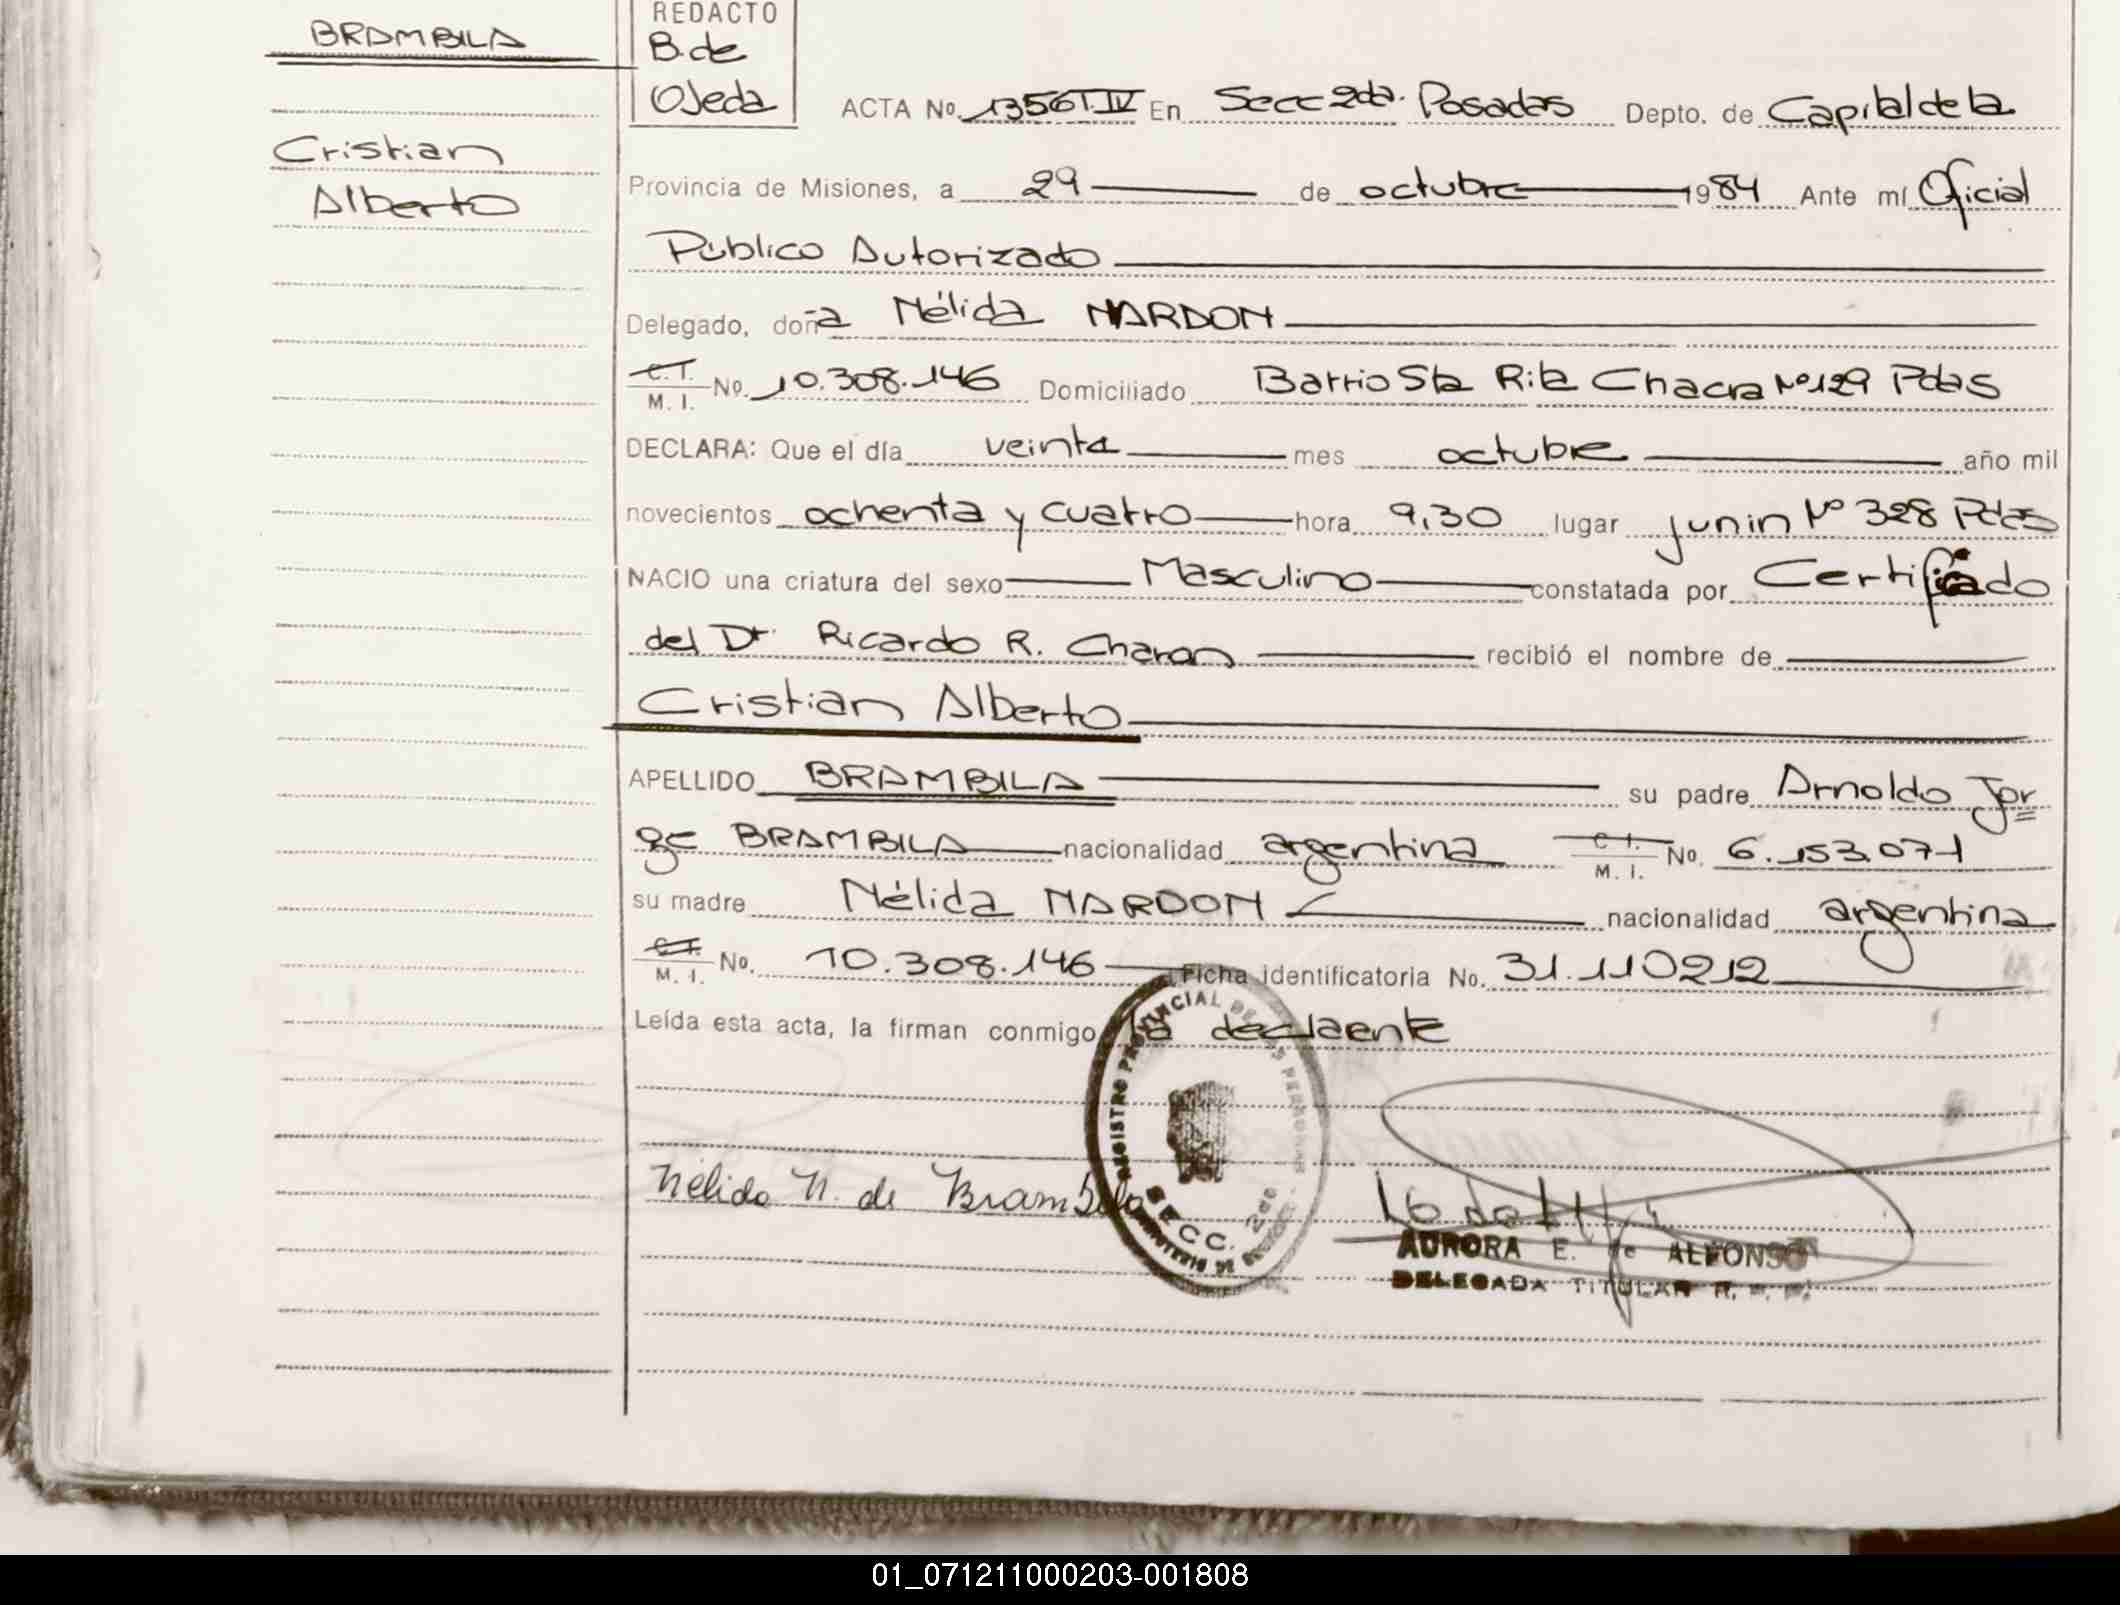 BRAMBILA
Cristian
Alberto
REDACTO
B. de
Ojeda
ACTA No. 1356 T. IV En Secc 2da. Posadas Depto. de Capital de la
Provincia de Misiones, a 29 de octubre 1984 Ante mí Oficial
Público Autorizado
Delegado, doña Nélida NARDON
C. I. M. I. No. 10.308.146 Domiciliado Barrio Sta Rita Chacra Nº 129 Pdas
DECLARA: Que el día veinte mes octubre año mil
novecientos ochenta y cuatro hora 9,30 lugar junin Nº 328 Pdas
NACIO una criatura del sexo Masculino constatada por Certificado
del Dr Ricardo R. Charon recibió el nombre de
Cristian Alberto
APELLIDO BRAMBILA su padre Arnoldo Jor
ge BRAMBILA nacionalidad argentina C. I. M. I. No. 6.153.071
su madre Nélida NARDON nacionalidad argentina
C. I. M. I. No. 10.308.146 Ficha identificatoria No. 31.110212
Leída esta acta, la firman conmigo la declaente
REGISTRO PROVINCIAL DE LAS PERSONAS
SECC. 2da
MINISTERIO DE
Nélida N. de Brambila
AURORA E. de ALFONSO
DELEGADA TITULAR R. P. P.
01_071211000203-001808